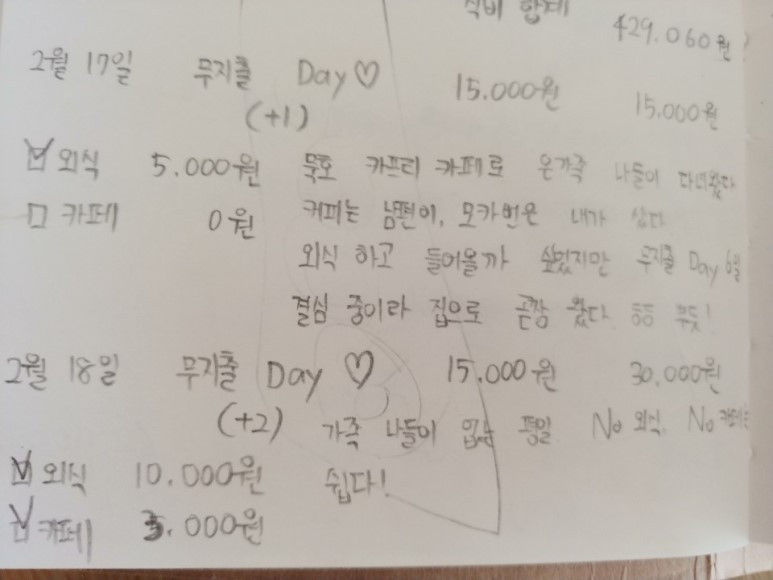 식비 합계 429.060원
2월 17일 무지출 Day♡ 15.000원 15.000원
(+1)
☑ 외식 5.000원 묵호 카프리 카페로 온가족 나들이 다녀왔다
□ 카페 0원 커피는 남편이, 모카번은 내가 샀다
외식 하고 들어올까 싶었지만 무지출 Day 6일
결심 중이라 집으로 곧장 왔다 흐흐 뿌듯!
2월 18일 무지출 Day ♡ 15.000원 30.000원
(+2) 가족 나들이 없는 평일 No 외식. No 카페는
☑ 외식 10.000원 쉽다!
☑ 카페 5.000원